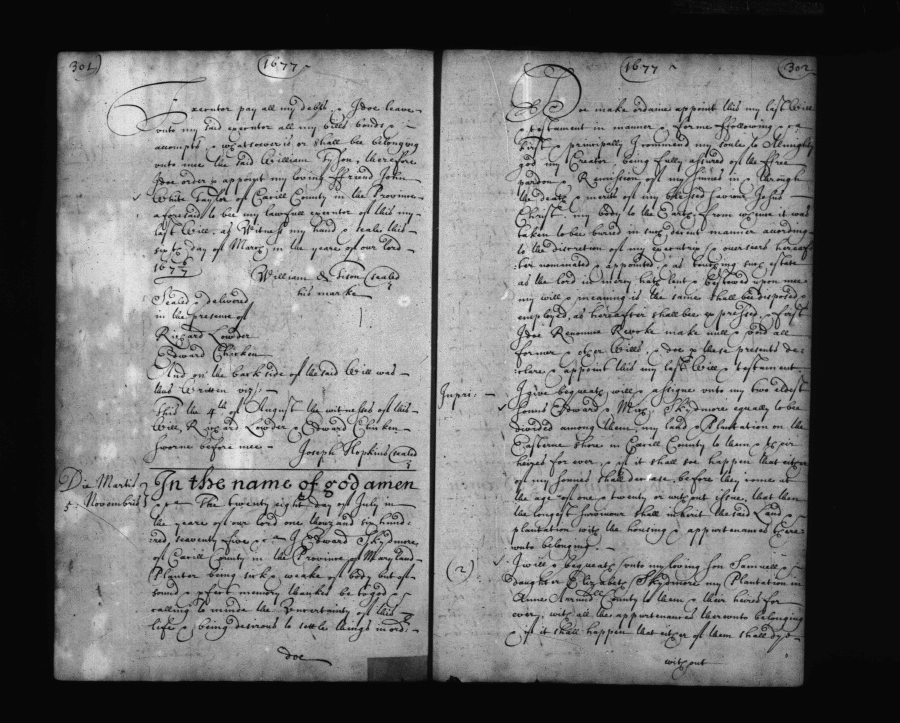 301
1677
Executor pay all my debts & I doe leave
unto my said executor all my bills bonds &
accompts & whatsoever is or shall bee belonging
unto mee the said William Tyson, therefore
I doe order & appoynt my loving ffriend John
White Taylor of Cecill County in the Province
aforesaid to bee my lawfull executor of this my
last Will, as Witness my hand & seale this
sixt day of March in the yeare of our lord
1677
William & Tison sealed
his marke
Sealed & delivered
in the presence of
Richard Lowder
Edward Chicken
And on the back side of the said Will was
thus Written viz:
This the 4th of August the witnesses of this
Will, Richard Lowder & Edward Chicken
sworne before mee Joseph Hopkins sealed
Die Martis
5 Novembris
In the name of god amen
The twenty eight day of July in
the yeare of our lord one thousand six hund:
red, seaventy five, I Edward Skydmore
of Cecill County in the Province of Maryland
Planter being sick & weake of body but of
sound & perfect memory thankes be to god &
calling to minde the uncertainty of this
life & being desirous to settle things in ord:
doe
1677
302
Doe make ordaine appoint this my last Will
& testament in manner & forme ffollowing
first & principally I commend my soule to Almighty
god my Creator being fully assured of the ffree
pardon & Remission of my sinnes in & through
the death & merits of my blessed saviour Jesus
Christ, my body to the Earth from whence it was
taken to be buried in such decent manner acording
to the discretion of my executrix & overseers hereaf
ter nominated & appointed, as touching such estate
as the lord in mercy hath lent & bestowed upon mee
my will & meaning is the same shall bee disposed &
employed, as hereafter shall bee expressed, & first
I doe Renounce Revoke make null & void all
former & other Wills & doe by these presents de:
clare & appoint this my last Will & testament
Inpri:
I give bequeath will & assigne unto my two eldest
sonns Edward & Skydmore equally to bee
devided among them, my land & Plantation on the
Easterne shore in Cecill County to them & their
heires for ever, & if it shall soe happen that either
of my sonnes shall decease, before they come at
the age of one & twenty or without issue, that then
the longest survivour shall inherit the said Land &
plantation with the housing & appurtenances there
unto belonging.
(2)
I will & bequeath unto my loving son Samuell &
Daughter Elizabeth Skydmore my Plantation in
Anne Arrundl County to them & their heires for
ever, with all the appurtenances thereunto belonging
& if it shall happen that either of them shall dye
without